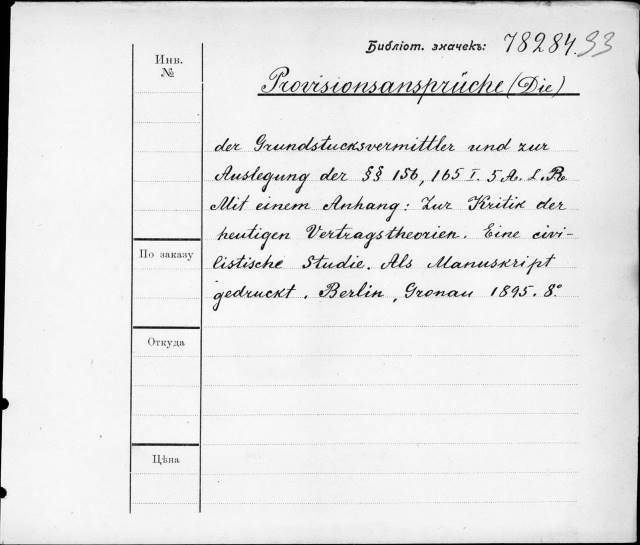 Библіот. значекъ: 78284.93
Инв.
№
Provisionsansprüche (Die)
der Grundstucksvermittler und zur
Auslegung der §§ 156, 165 I. 5 A. L. R.
Mit einem Anhang: Zur Kritik der
heutigen Vertragstheorien. Eine civi-
По заказу
listische Studie. Als Manuskript
gedruckt. Berlin, Gronau 1895. 8°
Откуда
Цѣна